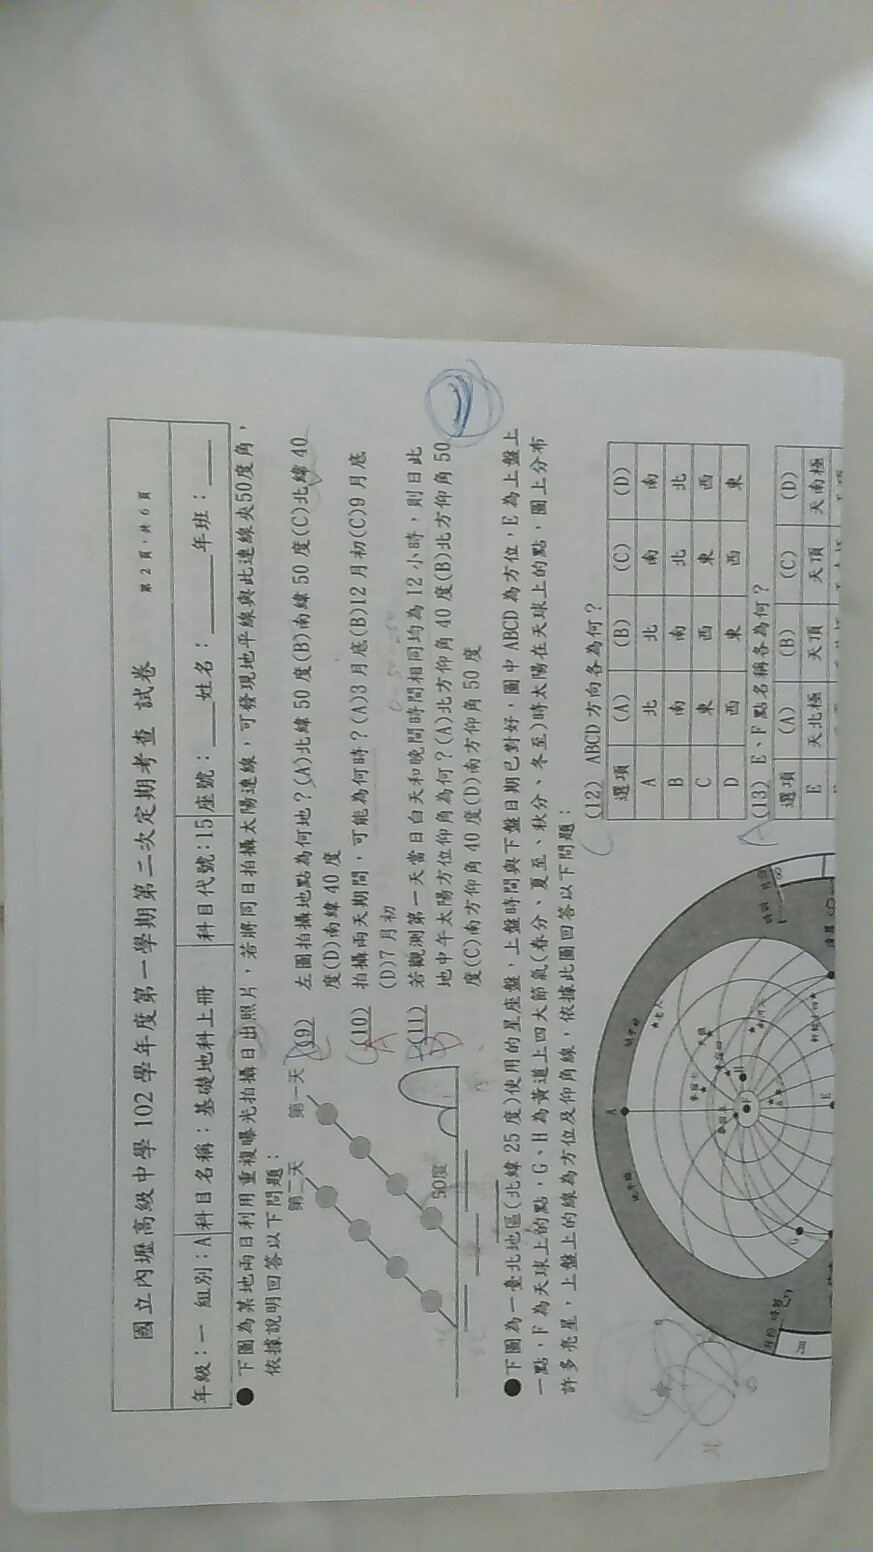 國立內壢高級中學102學年度第一學期第二次定期考查 試卷 第2頁,共6頁
年級:一 組別:A 科目名稱:基礎地科上冊 科目代號:15 座號:____姓名:______年班:____
●下圖為某地兩日利用重複曝光拍攝日出照片,若將同日拍攝太陽連線,可發現地平線與此連線夾50度角,
依據說明回答以下問題:
第二天 第一天
50度
(9) 左圖拍攝地點為何地?(A)北緯50度(B)南緯50度(C)北緯40
度(D)南緯40度
(10) 拍攝兩天期間,可能為何時?(A)3月底(B)12月初(C)9月底
(D)7月初
(11) 若觀測第一天當日白天和晚間時間相同均為12小時,則日此
地中午太陽方位仰角為何?(A)北方仰角40度(B)北方仰角50
度(C)南方仰角40度(D)南方仰角50度
●下圖為一臺北地區(北緯25度)使用的星座盤,上盤時間與下盤日期已對好,圖中ABCD為方位,E為上盤上
一點,F為天球上的點,G、H為黃道上四大節氣(春分、夏至、秋分、冬至)時太陽在天球上的點,圖上分布
許多亮星,上盤上的線為方位及仰角線,依據此圖回答以下問題:
A
F
H
E
G
(12) ABCD方向各為何?
選項 (A) (B) (C) (D)
A 北 北 南 南
B 南 南 北 北
C 東 西 東 西
D 西 東 西 東
(13) E、F點名稱各為何?
選項 (A) (B) (C) (D)
E 天北極 天頂 天頂 天南極